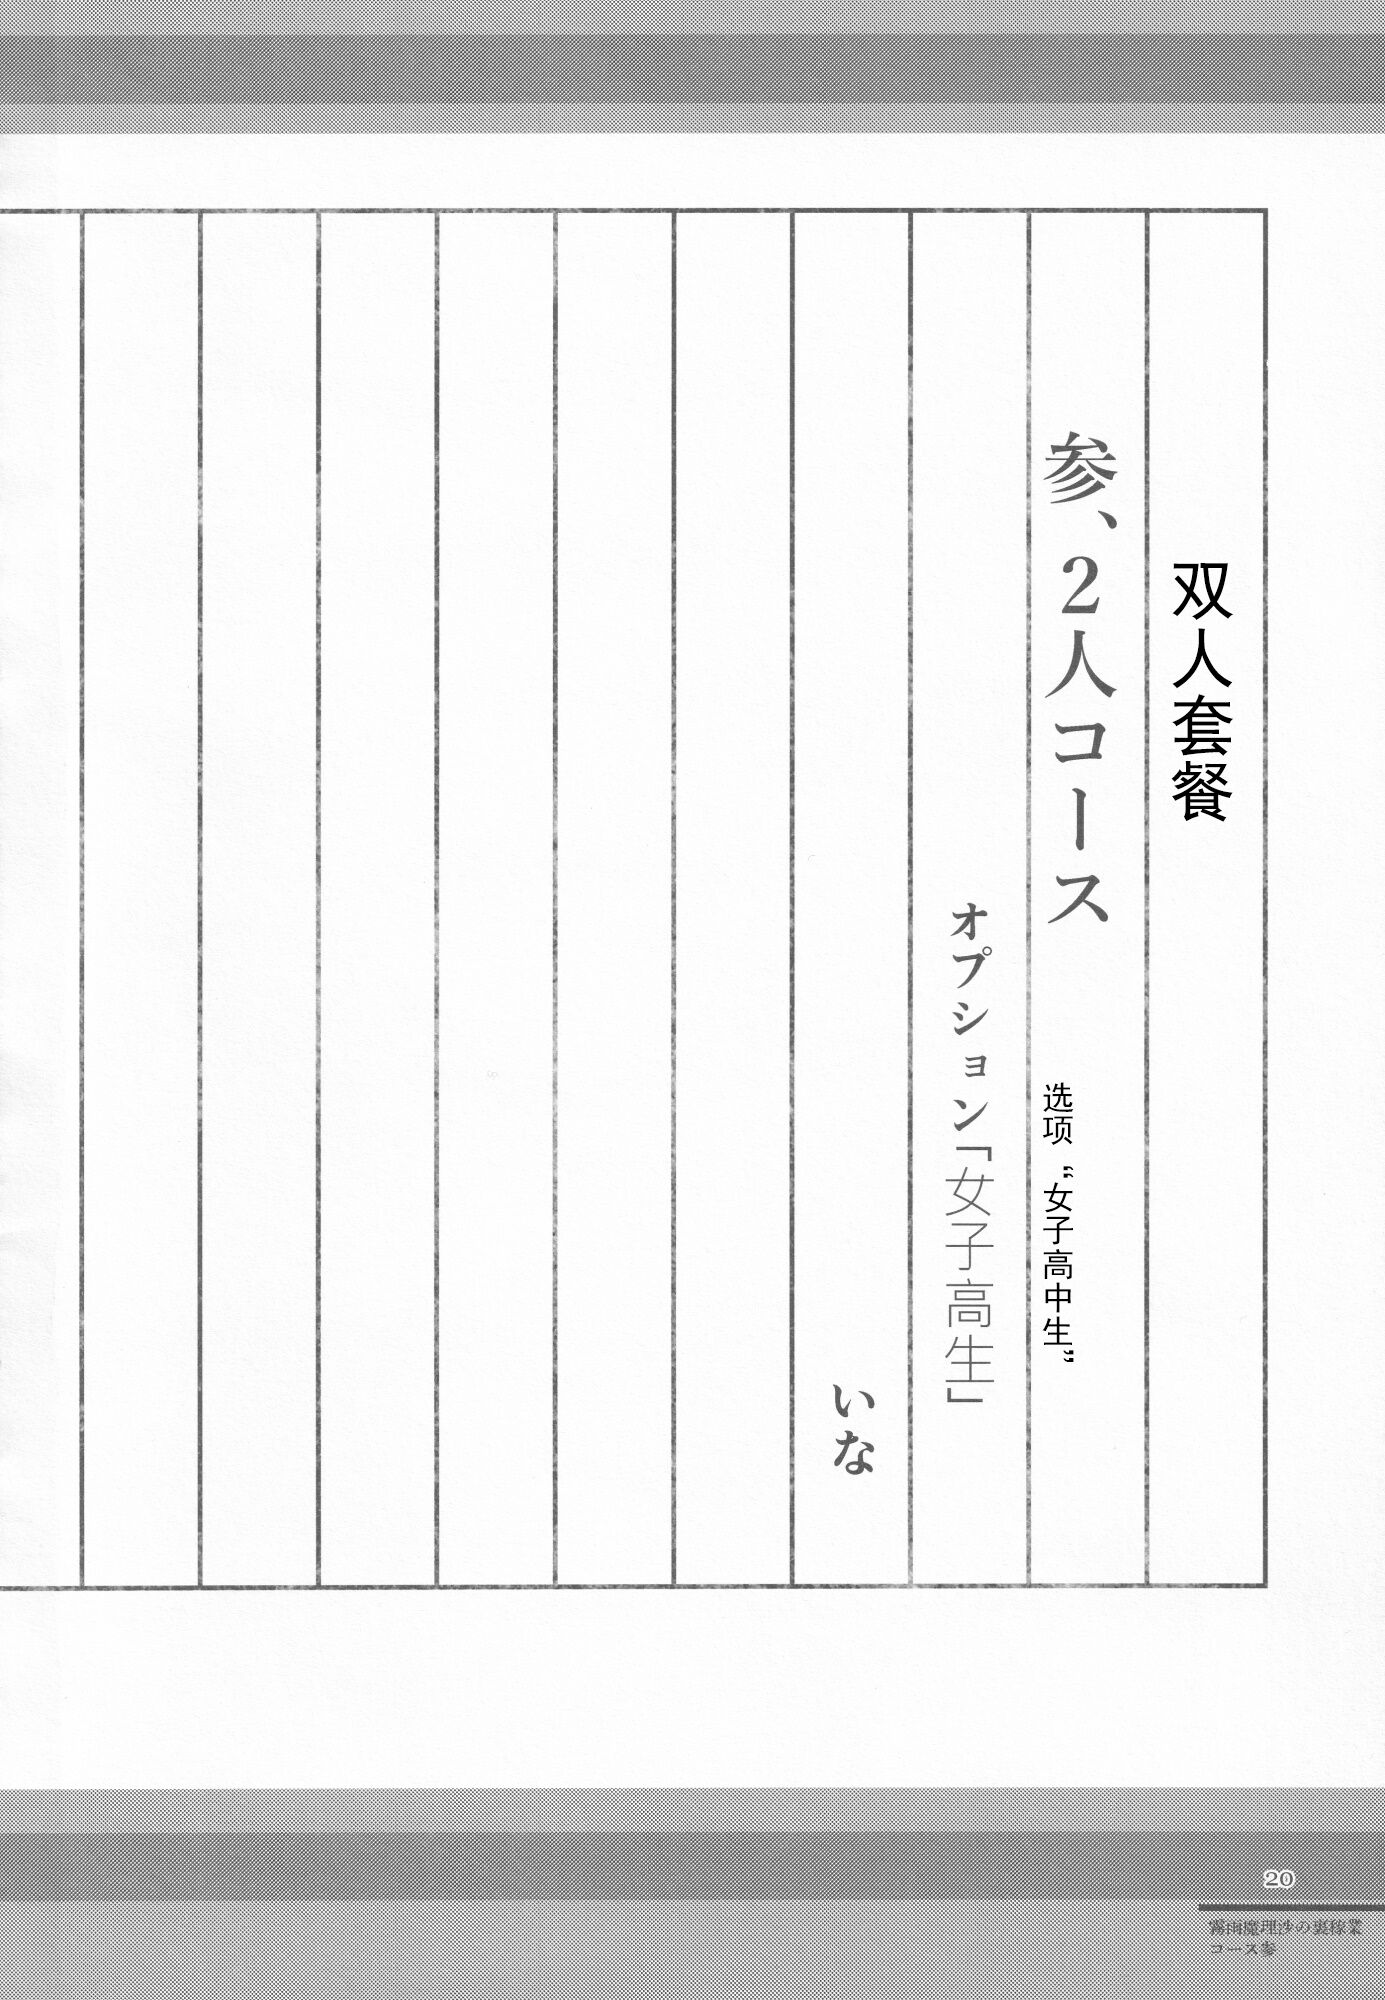 双人套餐
参、2人コース
选项“女子高中生”
オプション「女子高生」
いな
20
霧雨魔理沙の裏稼業
コース参